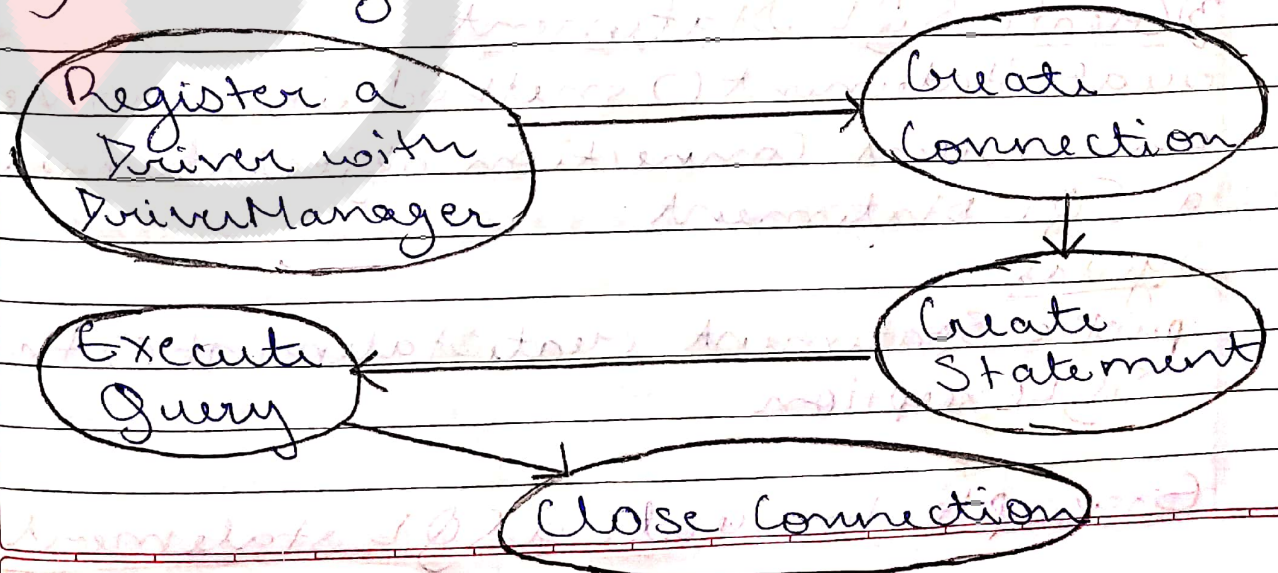 Register a
Driver with
DriverManager
Create
Connection
Create
Statement
Execute
Query
Close Connection